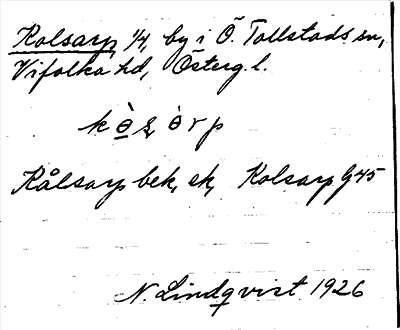 Kolsarp 1/4, by i Ö. Tollstads sn,
Vifolka hd, Österg. l.
Kålsarp bek, ek, Kolsarp G45
N. Lindqvist 1926